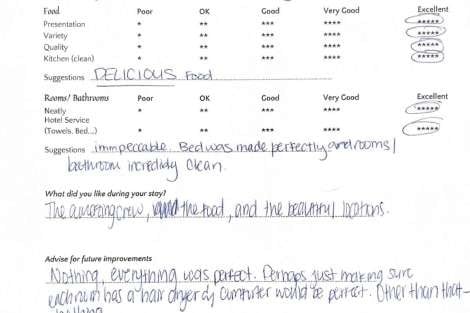 Food Poor OK Good Very Good Excellent
Presentation * ** *** **** *****
Variety * ** *** **** *****
Quality * ** *** **** *****
Kitchen (clean) * ** *** **** *****
Suggestions DELICIOUS Food
Rooms/ Bathrooms Poor OK Good Very Good Excellent
Neatly * ** *** **** *****
Hotel Service
(Towels, Bed...) * ** *** **** *****
Suggestions immpeccable. Bed was made perfectly and rooms/
bathroom incredidy clean.
What did you like during your stay?
The amazing crew, the food, and the beautiful locations.
Advise for future improvements
Nothing, everything was perfect. Perhaps just making sure
each rum has a hair dryer would be perfect. Other than that-